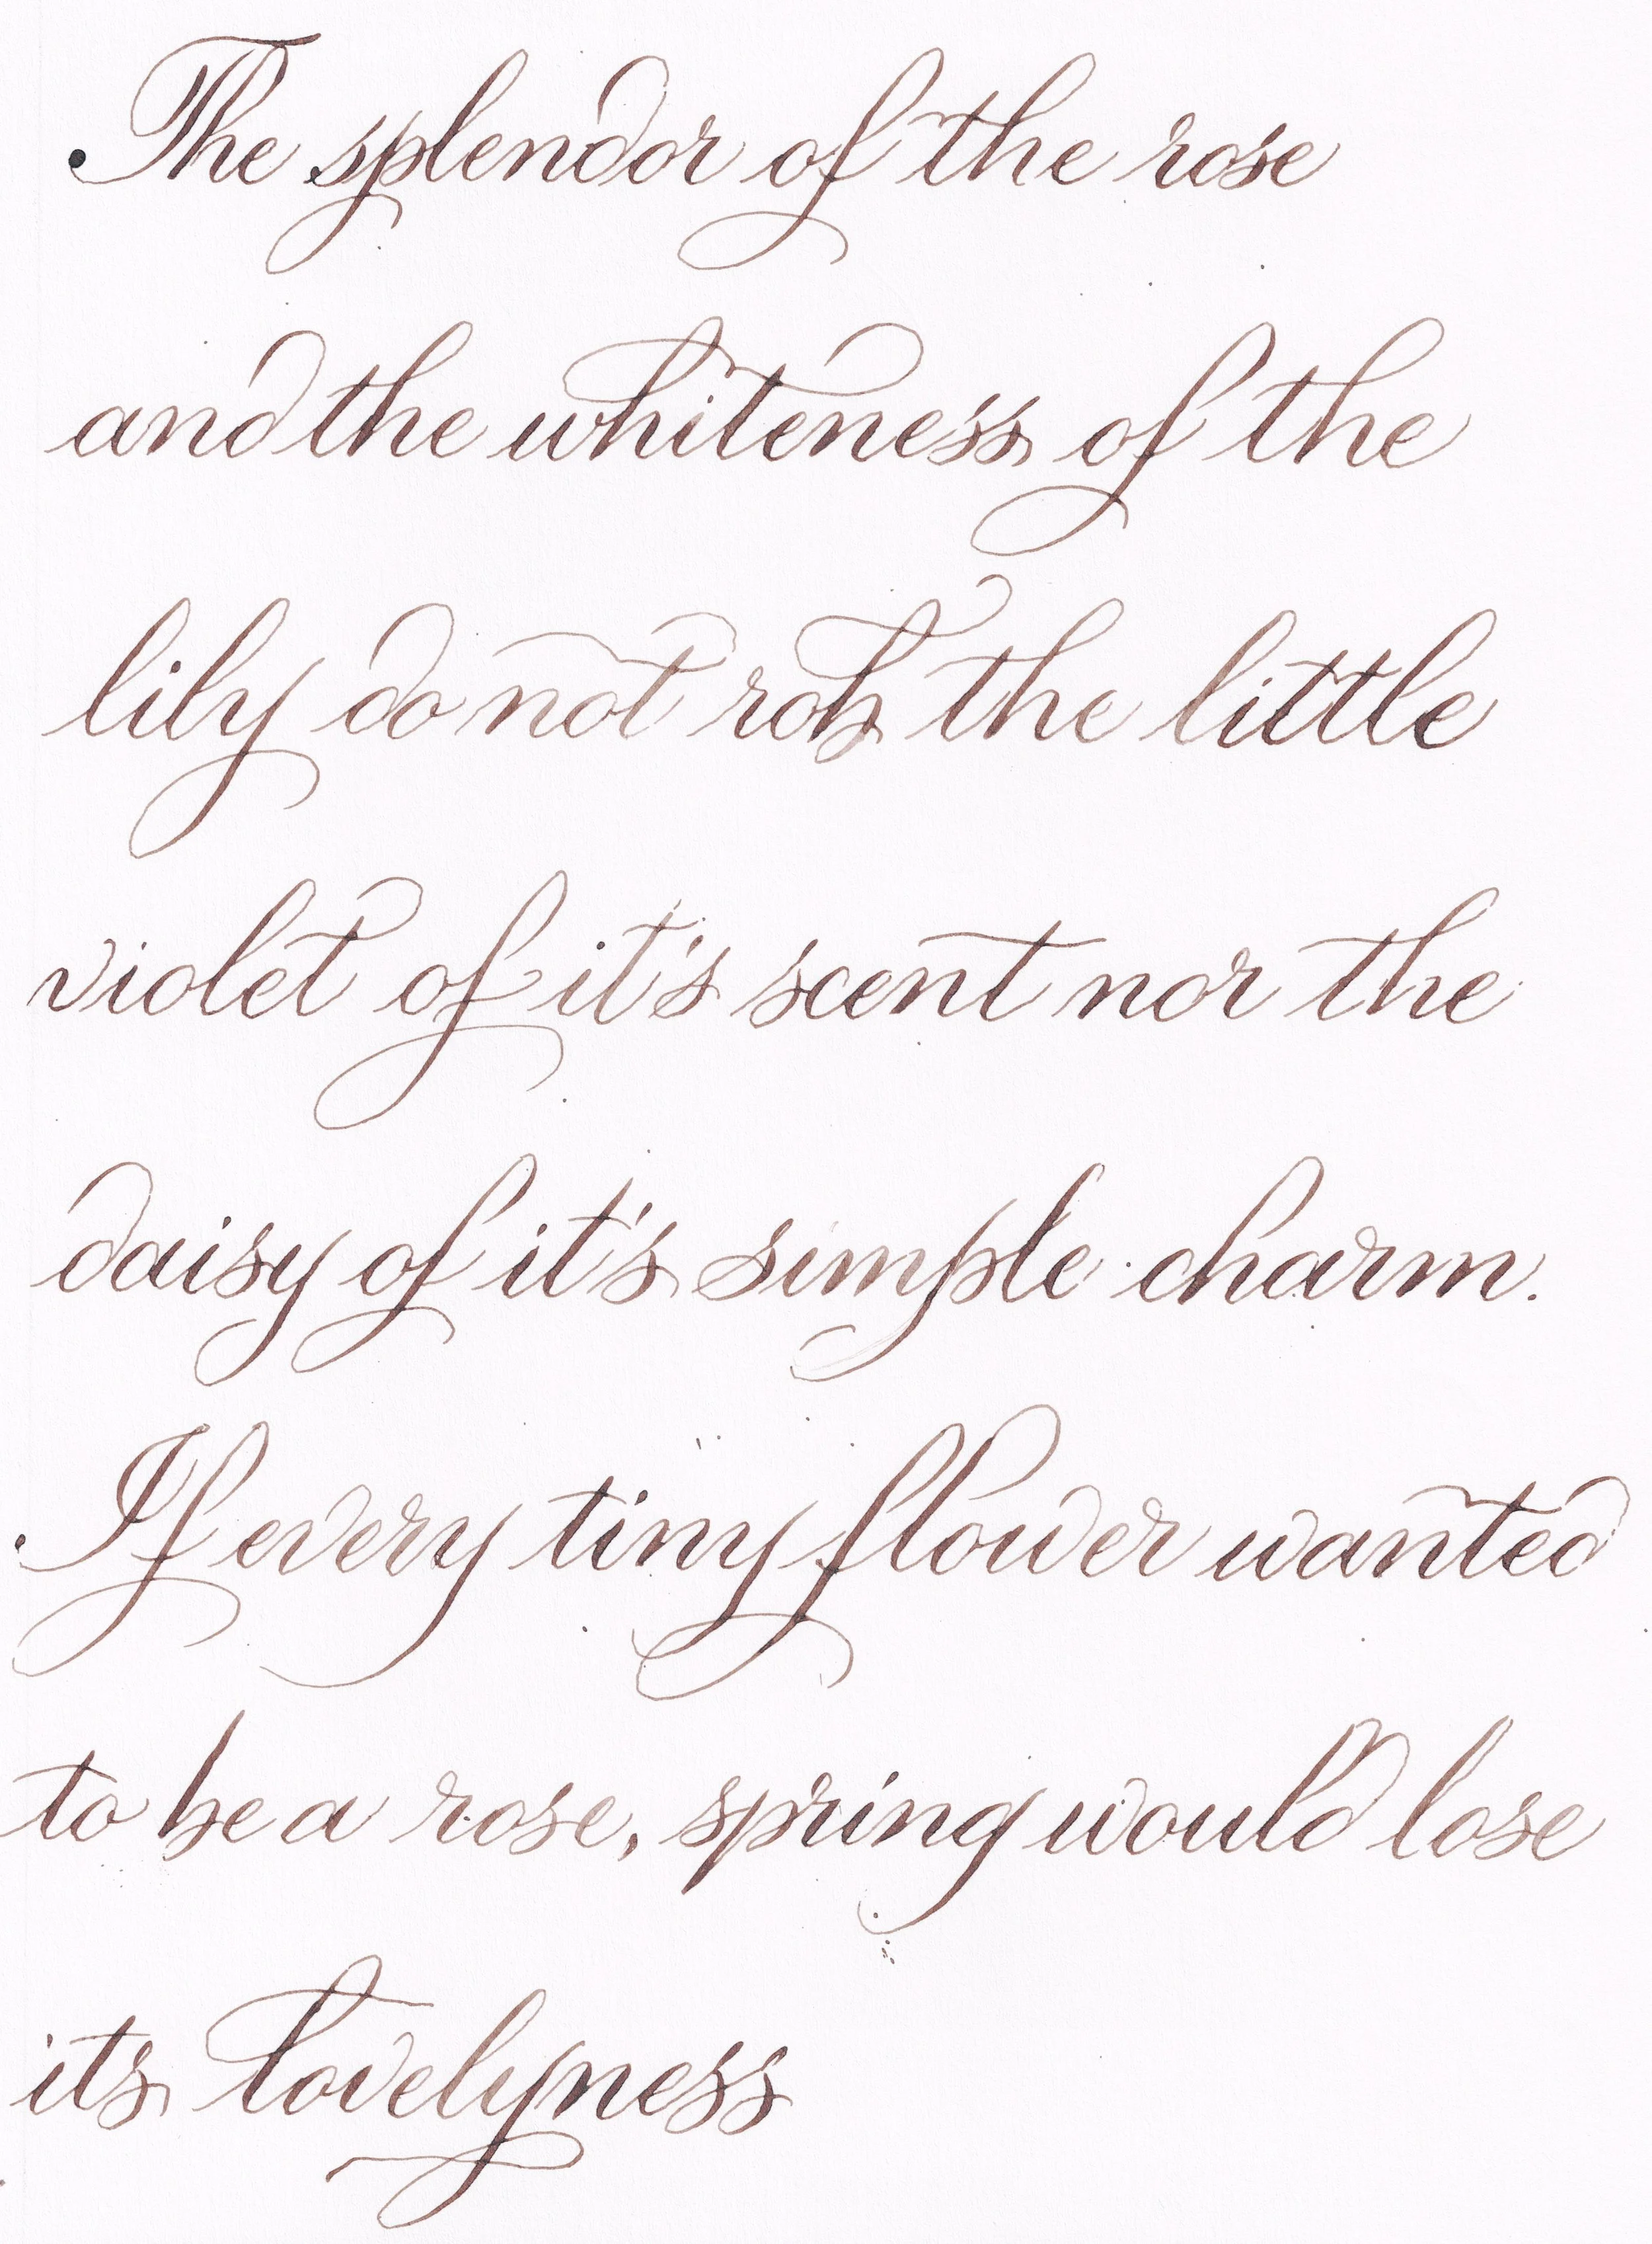 The splendor of the rose
and the whiteness of the
lily do not rob the little
violet of it's scent nor the
daisy of it's simple charm.
If every tiny flower wanted
to be a rose, spring would lose
its lovelyness